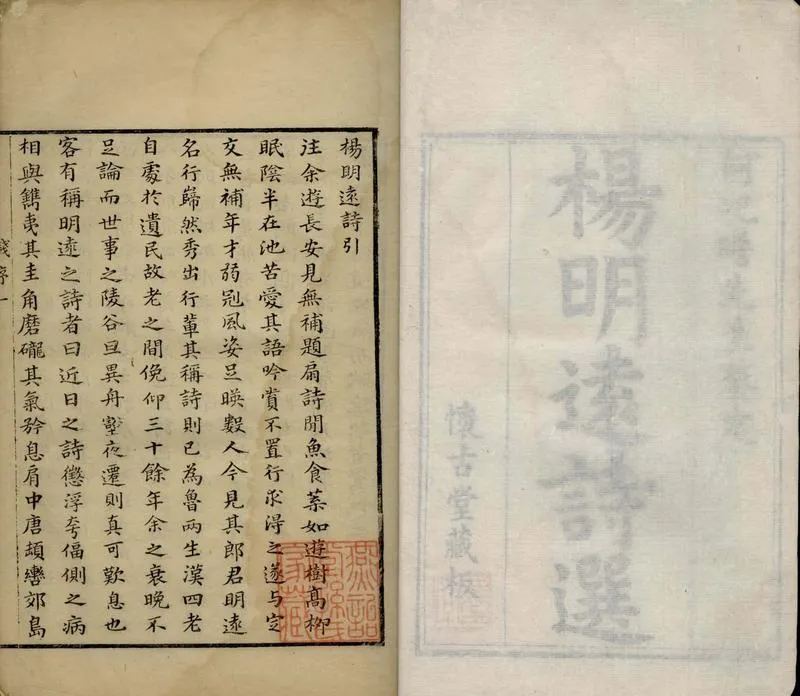 楊明遠詩選
懷古堂藏板
楊明遠詩引
注余遊長安見無補題扇詩閒魚食葉如遊樹髙柳
眠陰半在池苦愛其語吟賞不置行求淂之遂与定
交無補年才弱冠風姿足暎數人今見其郎君明遠
名行巋然秀出行輩其稱詩則已為魯兩生漢四老
自處於遺民故老之間俛仰三十餘年余之衰晚不
足論而世事之陵谷旦異舟壑夜遷則真可歎息也
客有稱明遠之詩者曰近日之詩懲浮夸偪側之病
相與鐫夷其圭角磨礲其氣矜息肩中唐郊島
序一